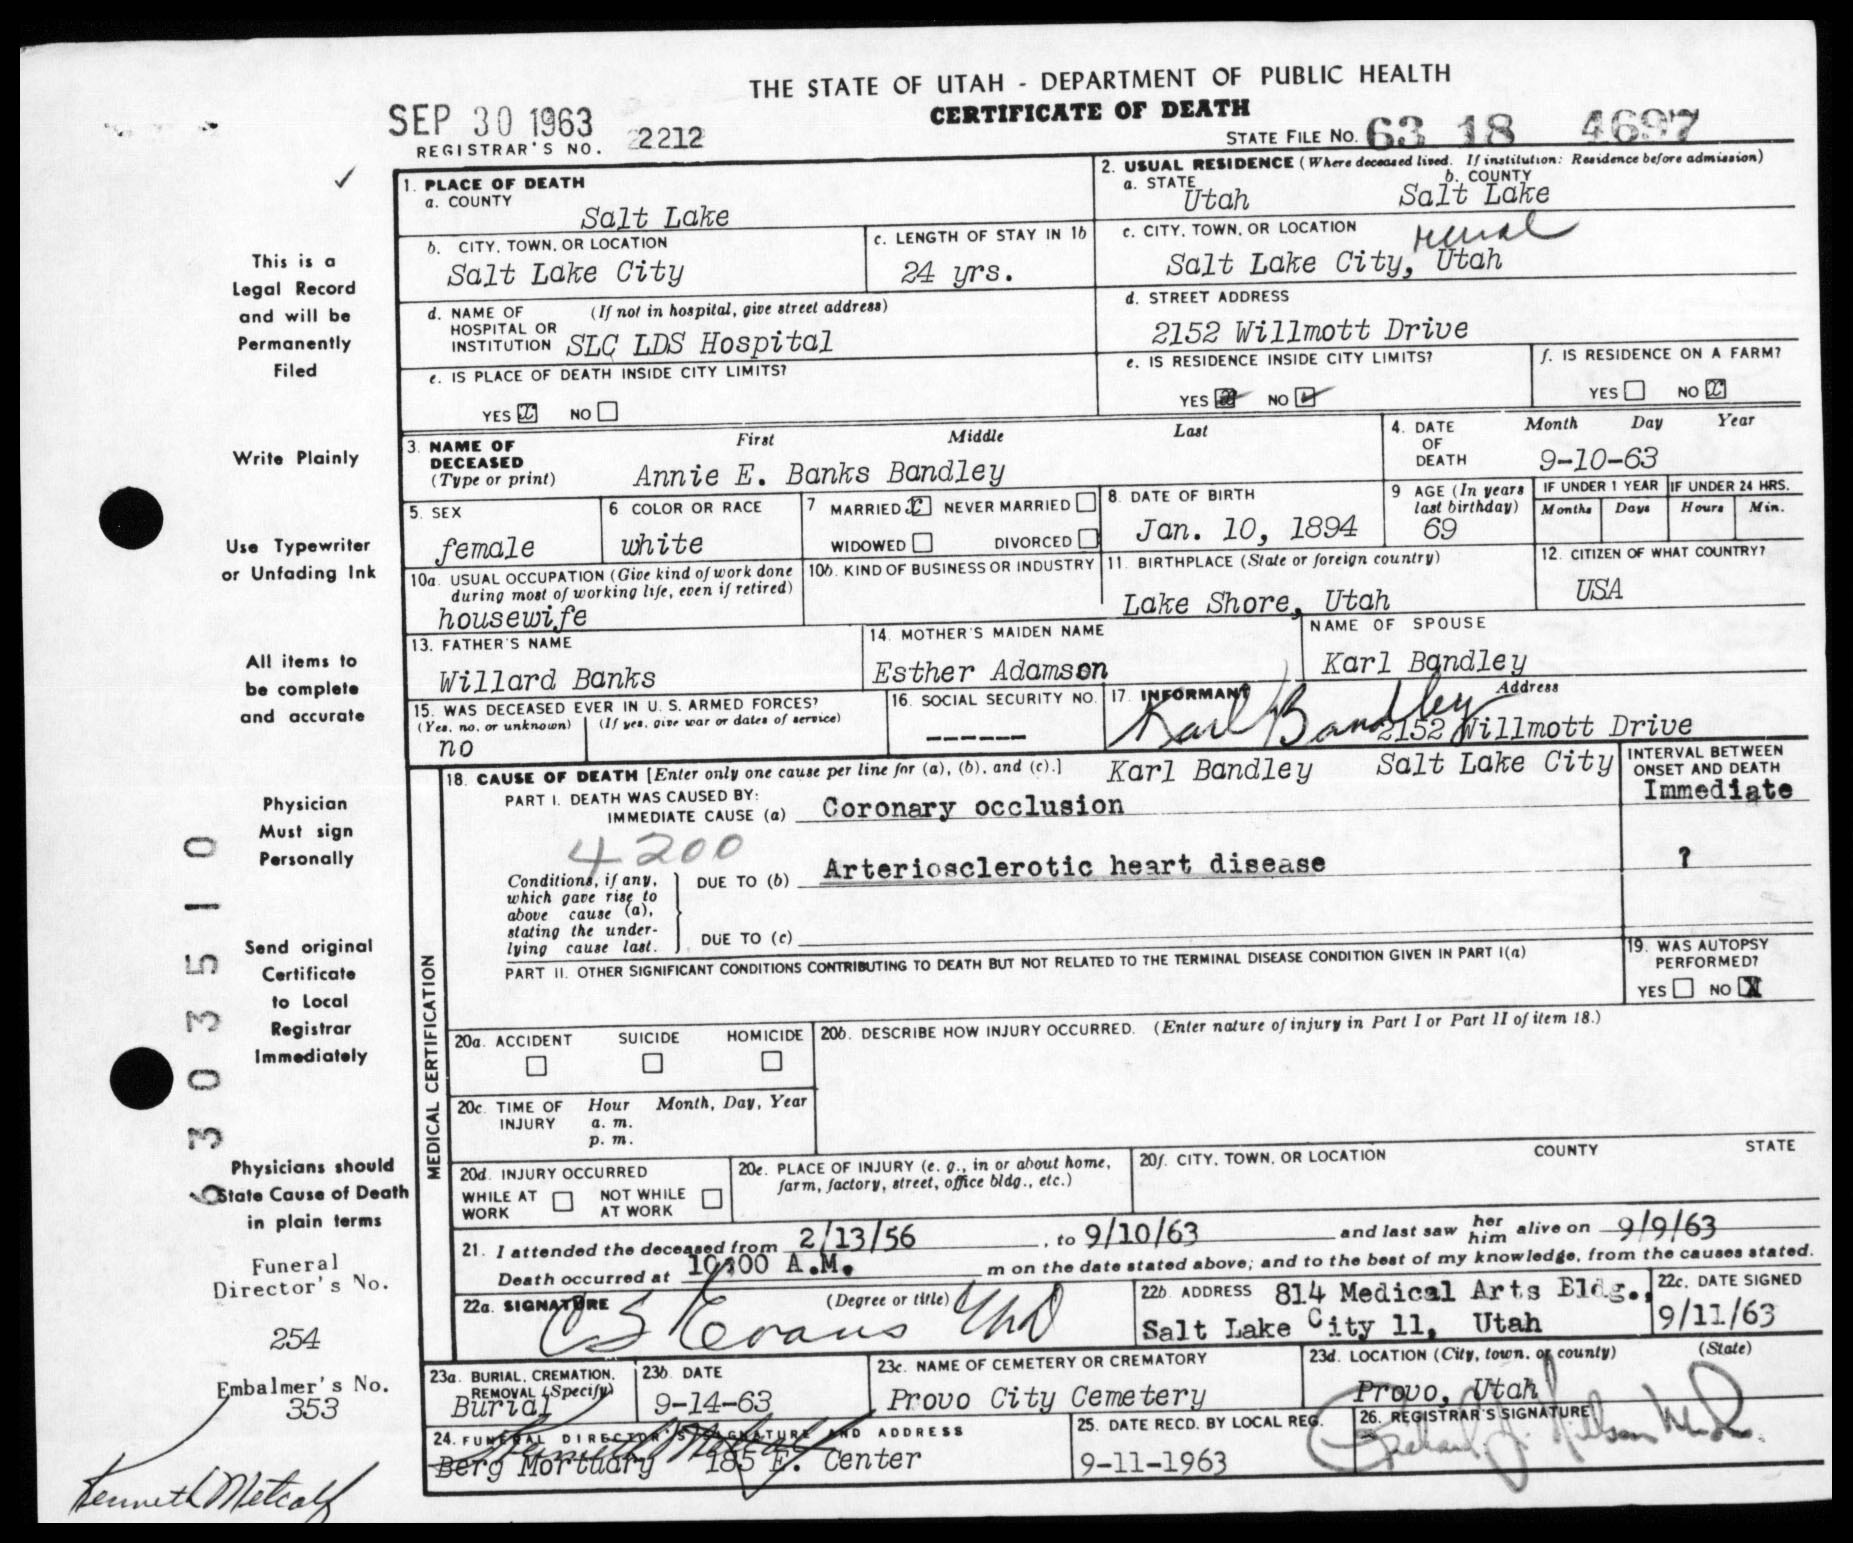 THE STATE OF UTAH - DEPARTMENT OF PUBLIC HEALTH
CERTIFICATE OF DEATH
SEP 30 1963
REGISTRAR'S NO. 2212
STATE FILE NO. 63 18 4697
This is a
Legal Record
and will be
Permanently
Filed
Write Plainly
Use Typewriter
or Unfading Ink
All items to
be complete
and accurate
Physician
Must sign
Personally
Send original
Certificate
to Local
Registrar
Immediately
Physicians should
State Cause of Death
in plain terms
Funeral
Director's No.
254
Embalmer's No.
353
Kenneth Metcalf
6303510
1. PLACE OF DEATH
a. COUNTY
Salt Lake
2. USUAL RESIDENCE (Where deceased lived. If institution: Residence before admission)
a. STATE Utah
b. COUNTY Salt Lake
b. CITY, TOWN, OR LOCATION
Salt Lake City
c. LENGTH OF STAY IN 1b
24 yrs.
c. CITY, TOWN, OR LOCATION rural
Salt Lake City, Utah
d. NAME OF HOSPITAL OR INSTITUTION (If not in hospital, give street address)
SLC LDS Hospital
d. STREET ADDRESS
2152 Willmott Drive
e. IS PLACE OF DEATH INSIDE CITY LIMITS?
YES x NO
e. IS RESIDENCE INSIDE CITY LIMITS?
YES x NO ✓
f. IS RESIDENCE ON A FARM?
YES NO x
3. NAME OF DECEASED (Type or print)
First Middle Last
Annie E. Banks Bandley
4. DATE OF DEATH Month Day Year
9-10-63
5. SEX
female
6 COLOR OR RACE
white
7 MARRIED x NEVER MARRIED
WIDOWED DIVORCED
8. DATE OF BIRTH
Jan. 10, 1894
9 AGE (In years last birthday)
69
IF UNDER 1 YEAR
Months Days
IF UNDER 24 HRS.
Hours Min.
10a. USUAL OCCUPATION (Give kind of work done during most of working life, even if retired)
housewife
10b. KIND OF BUSINESS OR INDUSTRY
11. BIRTHPLACE (State or foreign country)
Lake Shore, Utah
12. CITIZEN OF WHAT COUNTRY?
USA
13. FATHER'S NAME
Willard Banks
14. MOTHER'S MAIDEN NAME
Esther Adamson
NAME OF SPOUSE
Karl Bandley
15. WAS DECEASED EVER IN U. S. ARMED FORCES?
(Yes, no, or unknown) (If yes, give war or dates of service)
no
16. SOCIAL SECURITY NO.
------
17. INFORMANT Address
Karl Bandley 2152 Willmott Drive
Karl Bandley Salt Lake City
MEDICAL CERTIFICATION
18. CAUSE OF DEATH [Enter only one cause per line for (a), (b), and (c).]
INTERVAL BETWEEN ONSET AND DEATH
PART I. DEATH WAS CAUSED BY:
IMMEDIATE CAUSE (a) Coronary occlusion Immediate
4200
Conditions, if any, which gave rise to above cause (a), stating the underlying cause last.
DUE TO (b) Arteriosclerotic heart disease ?
DUE TO (c)
PART II. OTHER SIGNIFICANT CONDITIONS CONTRIBUTING TO DEATH BUT NOT RELATED TO THE TERMINAL DISEASE CONDITION GIVEN IN PART I(a)
19. WAS AUTOPSY PERFORMED?
YES NO X
20a. ACCIDENT SUICIDE HOMICIDE
20b. DESCRIBE HOW INJURY OCCURRED. (Enter nature of injury in Part I or Part II of item 18.)
20c. TIME OF INJURY Hour Month, Day, Year
a. m.
p. m.
20d. INJURY OCCURRED
WHILE AT WORK NOT WHILE AT WORK
20e. PLACE OF INJURY (e. g., in or about home, farm, factory, street, office bldg., etc.)
20f. CITY, TOWN, OR LOCATION COUNTY STATE
21. I attended the deceased from 2/13/56, to 9/10/63 and last saw her him alive on 9/9/63
Death occurred at 10:00 A.M. m on the date stated above; and to the best of my knowledge, from the causes stated.
22a. SIGNATURE (Degree or title)
C S Evans MD
22b. ADDRESS 814 Medical Arts Bldg.,
Salt Lake City 11, Utah
22c. DATE SIGNED
9/11/63
23a. BURIAL, CREMATION, REMOVAL (Specify)
Burial
23b. DATE
9-14-63
23c. NAME OF CEMETERY OR CREMATORY
Provo City Cemetery
23d. LOCATION (City, town, or county) (State)
Provo, Utah
24. FUNERAL DIRECTOR'S SIGNATURE AND ADDRESS
Kenneth Metcalf
Berg Mortuary 185 E. Center
25. DATE RECD. BY LOCAL REG.
9-11-1963
26. REGISTRAR'S SIGNATURE